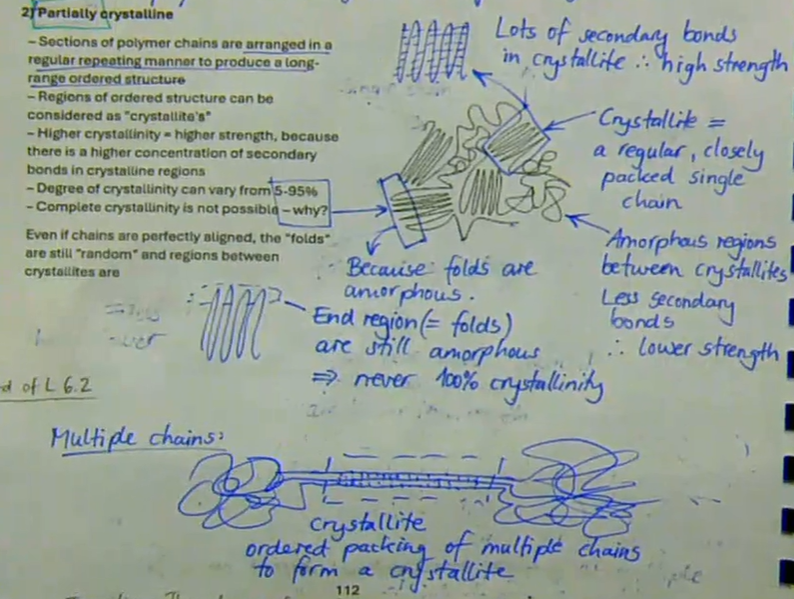 2) Partially crystalline
– Sections of polymer chains are arranged in a
regular repeating manner to produce a long-
range ordered structure
– Regions of ordered structure can be
considered as "crystallite's"
– Higher crystallinity = higher strength, because
there is a higher concentration of secondary
bonds in crystalline regions
– Degree of crystallinity can vary from 5-95%
– Complete crystallinity is not possible – why?
Even if chains are perfectly aligned, the "folds"
are still "random" and regions between
crystallites are
Lots of secondary bonds
in crystallite ∴ high strength
Crystallite =
a regular, closely
packed single
chain
Amorphous regions
between crystallites
Less secondary
bonds
∴ lower strength
Because folds are
amorphous.
End region (= folds)
are still amorphous
⇒ never 100% crystallinity
d of L 6.2
Multiple chains:
crystallite
ordered packing of multiple chains
to form a crystallite
112